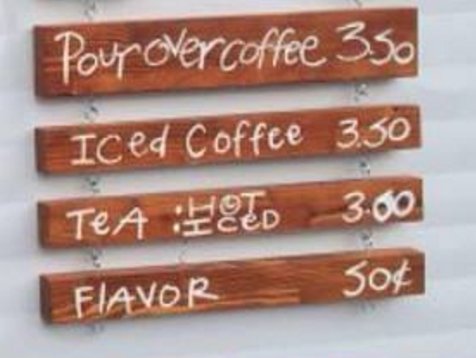 Pour over coffee 3.50
Iced Coffee 3.50
TeA :HOT :IceD 3.00
FlAVOR 50¢